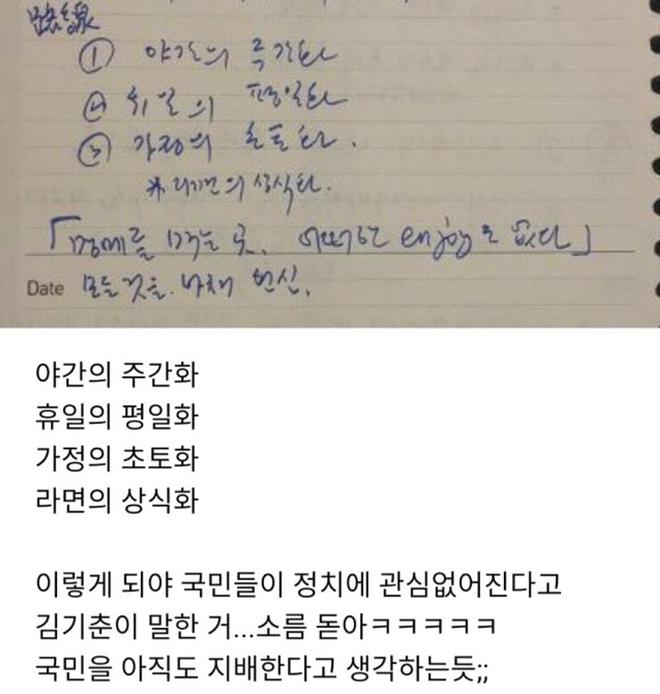 ① 야간의 주간화
② 휴일의 평일화
③ 가정의 초토화.
※ 라면의 상식화.
「명예를 먹는 곳, 어떠한 enjoy도 없다」
Date 모든 것을 바쳐 헌신.
야간의 주간화
휴일의 평일화
가정의 초토화
라면의 상식화
이렇게 되야 국민들이 정치에 관심없어진다고
김기춘이 말한 거...소름 돋아ㅋㅋㅋㅋㅋ
국민을 아직도 지배한다고 생각하는듯;;